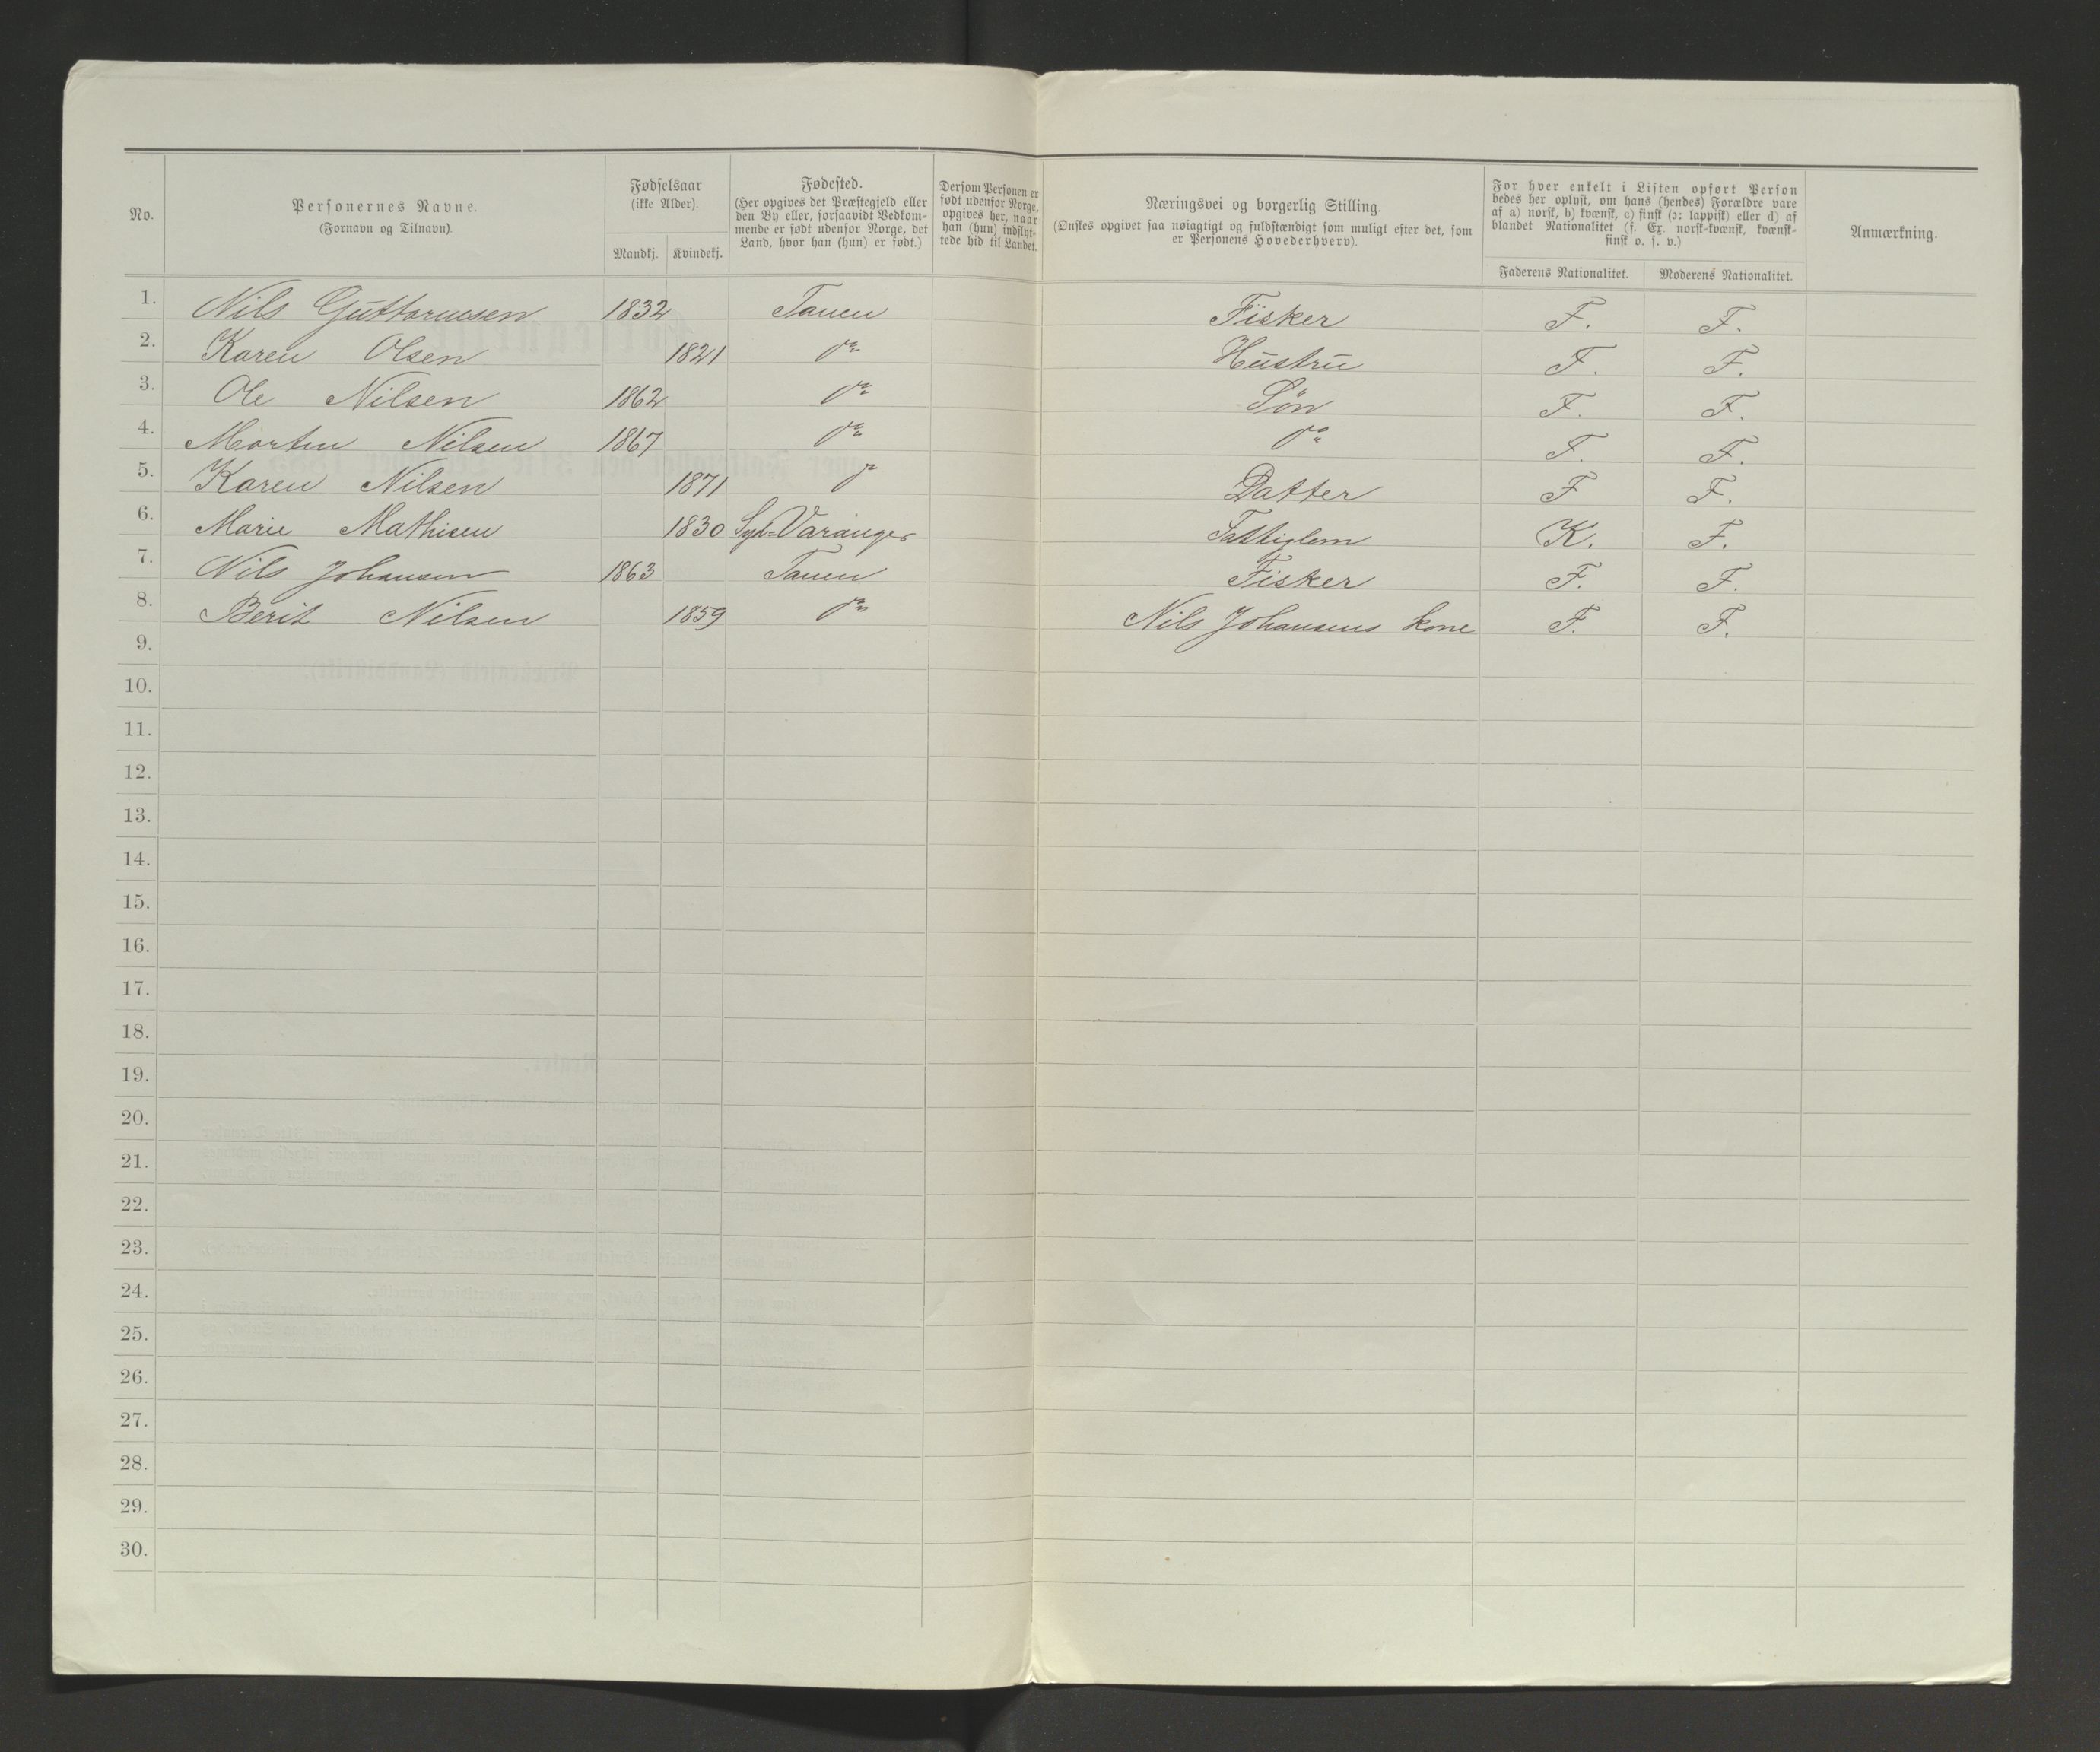 No.
Personernes Navne.
(Fornavn og Tilnavn).
Fødselsaar
(ikke Alder).
Mandkj. Kvindekj.
Fødested.
(Her opgives det Præstegjeld eller
den By eller, forsaavidt Vedkom-
mende er født udenfor Norge, det
Land, hvor han (hun) er født.)
Dersom Personen er
født udenfor Norge,
opgives her, naar
han (hun) indflyt-
tede hid til Landet.
Næringsvei og borgerlig Stilling.
(Ønskes opgivet saa nøiagtigt og fuldstændigt som muligt efter det, som
er Personens Hovederhverv).
For hver enkelt i Listen opført Person
bedes her oplyst, om hans (hendes) Forældre vare
af a) norsk, b) kvænsk, c) finsk (ɔ: lappisk) eller d) af
blandet Nationalitet (f. Ex. norsk-kvænsk, kvænsk-
finsk o. s. v.)
Faderens Nationalitet. Moderens Nationalitet.
Anmærkning.
1. Nils Guttormsen 1832 Tanen Fisker F. F.
2. Karen Olsen 1821 do Hustru F. F.
3. Ole Nilsen 1862 do Søn F. F.
4. Morten Nilsen 1867 do do F. F.
5. Karen Nilsen 1871 do Datter F F.
6. Marie Mathisen 1830 Syd-Varanger Fattiglem K. F.
7. Nils Johansen 1863 Tanen Fisker F. F.
8. Berit Nilsen 1859 do Nils Johansens kone F. F.
9.
10.
11.
12.
13.
14.
15.
16.
17.
18.
19.
20.
21.
22.
23.
24.
25.
26.
27.
28.
29.
30.